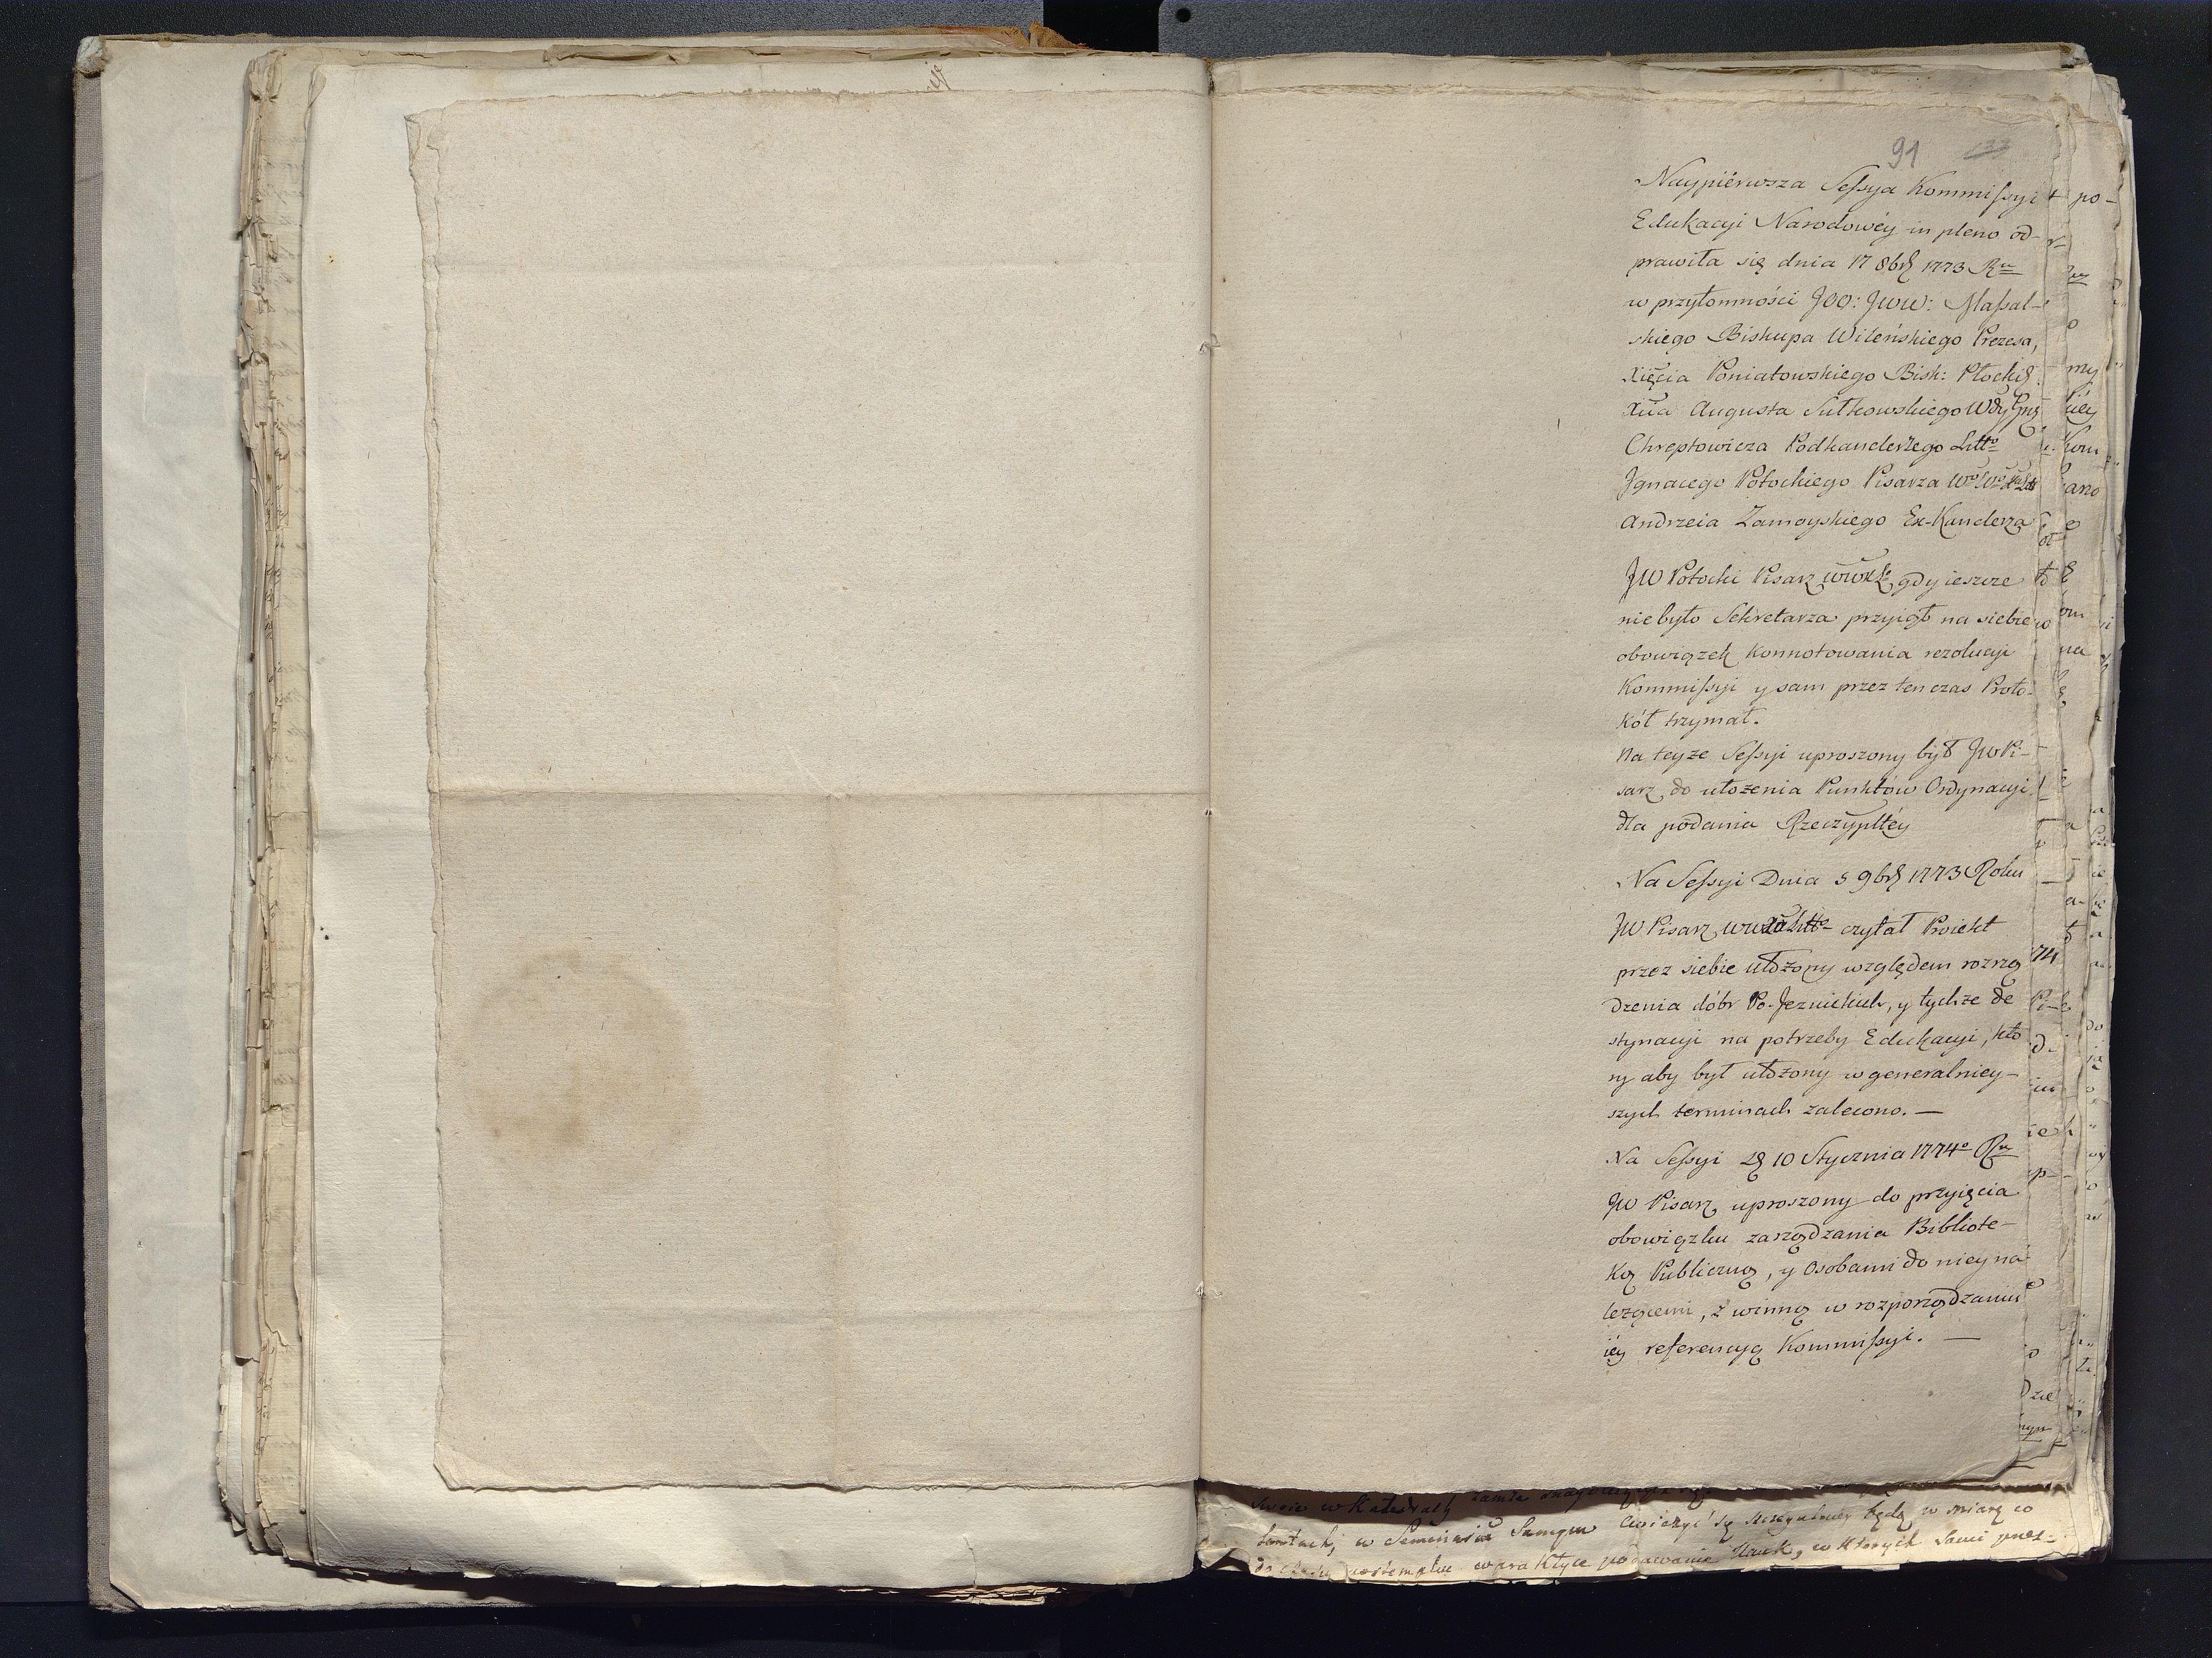 91
Naypiérwsza Sessya Kommissyi
Edukacyi Narodowéy in pleno od-
prawiła się dnia 17 8bris 1773 Ru
w przytomności JOO: JWW: Massal-
skiego Biskupa Wileńskiego Prezesa,
Xięcia Poniatowskiego Bisk: Płockie
Xcia Augusta Sułkowskiego Wdy Gnź
Chreptowicza Podkanclerzego Litto
Jgnacego Potockiego Pisarza
Andrzeia Zamoyskiego Ex-Kanclerza
JW Potocki Pisarz gdy ieszcze
nie było Sekretarza przyiął na siebie
obowiązek konnotowania rezolucyi
Kommissyi y sam przez ten czas Proto-
kół trzymał.
Na teyże Sessyi uproszony był JW Pi-
sarz do ułożenia Punktów Ordynacyi
dla podania Rzeczypltey
Na Sessyi Dnia 5 9bris 1773 Roku
JW Pisarz czytał Proiekt
przez siebie ułożony względem rozrzą
dzenia dóbr Po-Jezuickich, y tychże de
stynacyi na potrzeby Edukacyi, któ
ry aby był ułożony w generalniey-
szych terminach zalecono. —
Na Sessyi 10 Stycznia 1774o Ru
JW Pisarz uproszony do przyięcia
obowiązku zarządzania Bibliote-
ką Publiczną, y Osobami do niey na
leżącemi, z winną w rozporządzaniu
iéy referencyą Kommissyi. —
w Katedrach
w Seminaria Samym będą w miarę co
w praktyce podawania Nauk, w których sami